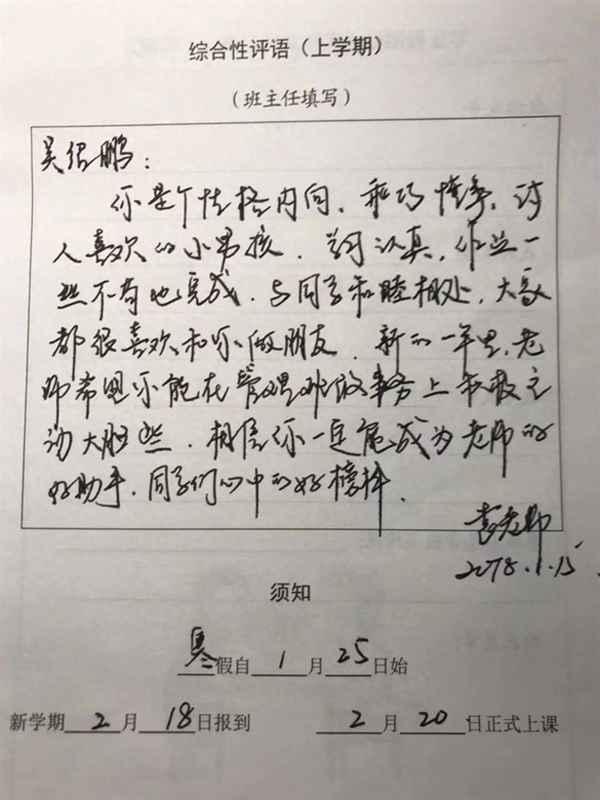 综合性评语（上学期）
（班主任填写）
吴 鹏：
你是个性格内向，乖巧懂事，讨
人喜欢的小男孩．学习认真，作业一
丝不苟地完成．与同学和睦相处，大家
都很喜欢和你做朋友．新的一年里，老
师希望你能在管理班级事务上积极主
动大胆些．相信你一定能成为老师的
好助手，同学们心中的好榜样．
老师
2018.1.15
须知
寒假自1月25日始
新学期2月18日报到 2月20日正式上课